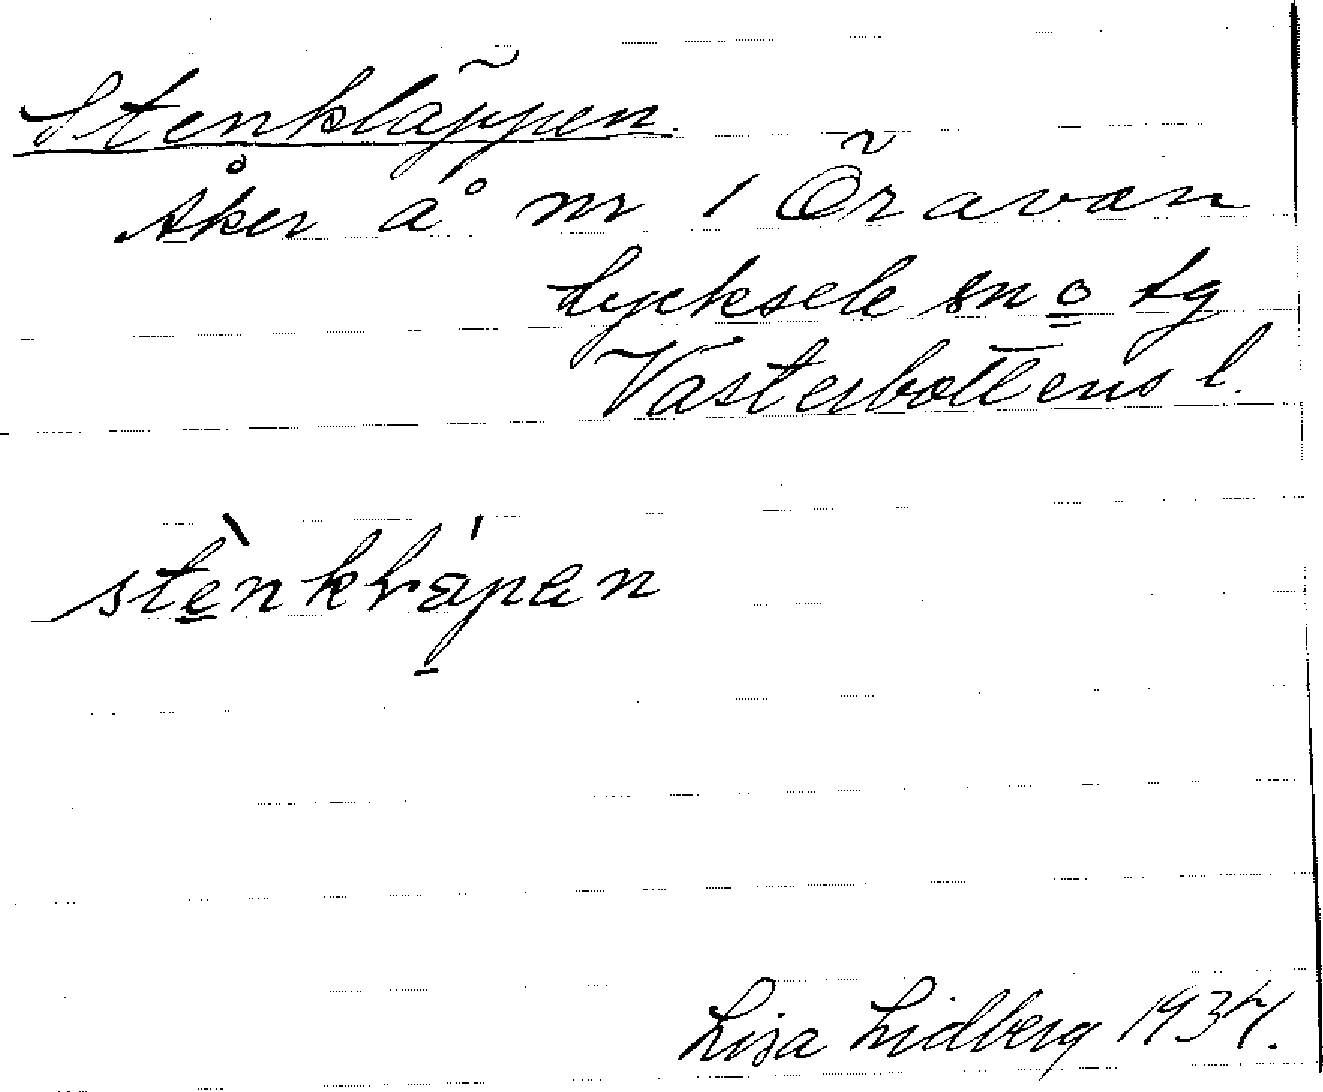 Stenkläppen.
Åker å nr 1 Öravan
Lycksele sn o tg
Västerbottens l.
stènklápan
Lisa Lidberg 1937.